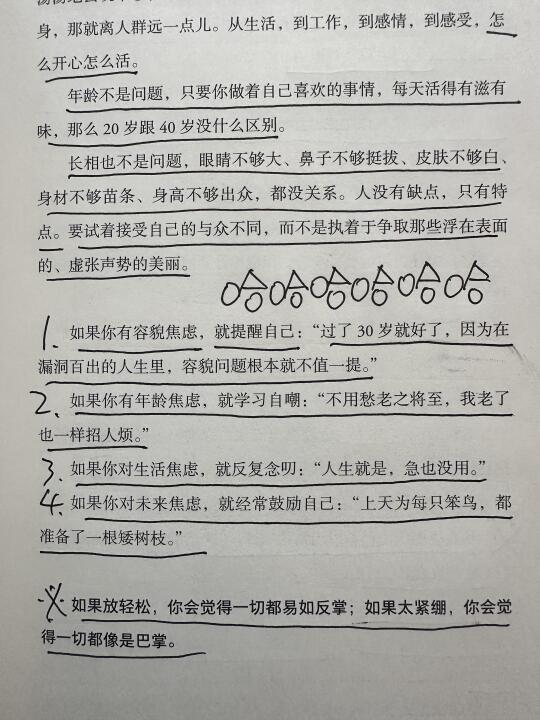 身，那就离人群远一点儿。从生活，到工作，到感情，到感受，怎
么开心怎么活。
年龄不是问题，只要你做着自己喜欢的事情，每天活得有滋有
味，那么 20 岁跟 40 岁没什么区别。
长相也不是问题，眼睛不够大、鼻子不够挺拔、皮肤不够白、
身材不够苗条、身高不够出众，都没关系。人没有缺点，只有特
点。要试着接受自己的与众不同，而不是执着于争取那些浮在表面
的、虚张声势的美丽。
1. 如果你有容貌焦虑，就提醒自己：“过了 30 岁就好了，因为在
漏洞百出的人生里，容貌问题根本就不值一提。”
2. 如果你有年龄焦虑，就学习自嘲：“不用愁老之将至，我老了
也一样招人烦。”
3. 如果你对生活焦虑，就反复念叨：“人生就是，急也没用。”
4. 如果你对未来焦虑，就经常鼓励自己：“上天为每只笨鸟，都
准备了一根矮树枝。”
※ 如果放轻松，你会觉得一切都易如反掌；如果太紧绷，你会觉
得一切都像是巴掌。